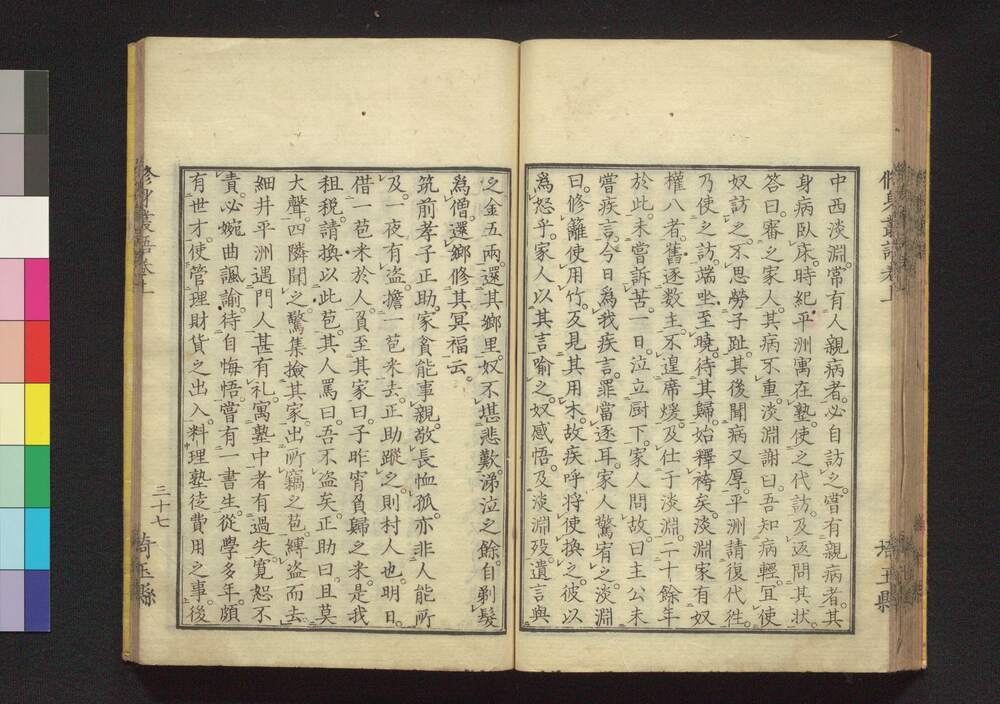 中西淡淵常有人親病者。必自訪之。嘗有親病者。其
身病臥床。時紀平洲寓在塾。使之代訪。及返問其狀。
答曰。審之家人。其病不重。淡淵謝曰。吾知病輕。宜使
奴訪之。不思勞子趾。其後聞病又厚。平洲請復代徃。
乃使之訪。端坐至曉。待其歸。始釋袴矣。淡淵家有奴
權八者。舊逐数主。不遑席煖。及仕于淡淵。二十餘年
於此。未嘗訴苦。一日泣立厨下。家人問故。曰。主公未
嘗疾言。今日為我疾言。罪當逐耳。家人驚宥之。淡淵
曰。修籬使用竹。及見其用木。故疾呼將使換之。彼以
為怒乎。家人以其言喻之。奴感悟。及淡淵歿。遺言與
之金五兩。還其鄉里。奴不堪悲歎。涕泣之餘。自剃髮
為僧。還鄉修其冥福云。
筑前孝子正助。家貧能事親。敬長恤孤。亦非人能所
及。一夜有盗。擔一苞米去。正助蹤之。則村人也。明日。
借一苞米於人。負至其家曰。子昨宵負歸之米。是我
租税。請換以此苞。其人罵曰。吾不盗矣。正助曰。且莫
大聲。四隣聞之。驚集撿其家。出所竊之苞。縛盗而去。
細井平洲遇門人甚有礼。寓塾中者有過失。寛恕不
責。必婉曲諷諭。待自悔悟。嘗有一書生。從學多年。頗
有世才。使管理財貨之出入。料理塾徒費用之事。後
修身叢語卷上
三十七
埼玉縣